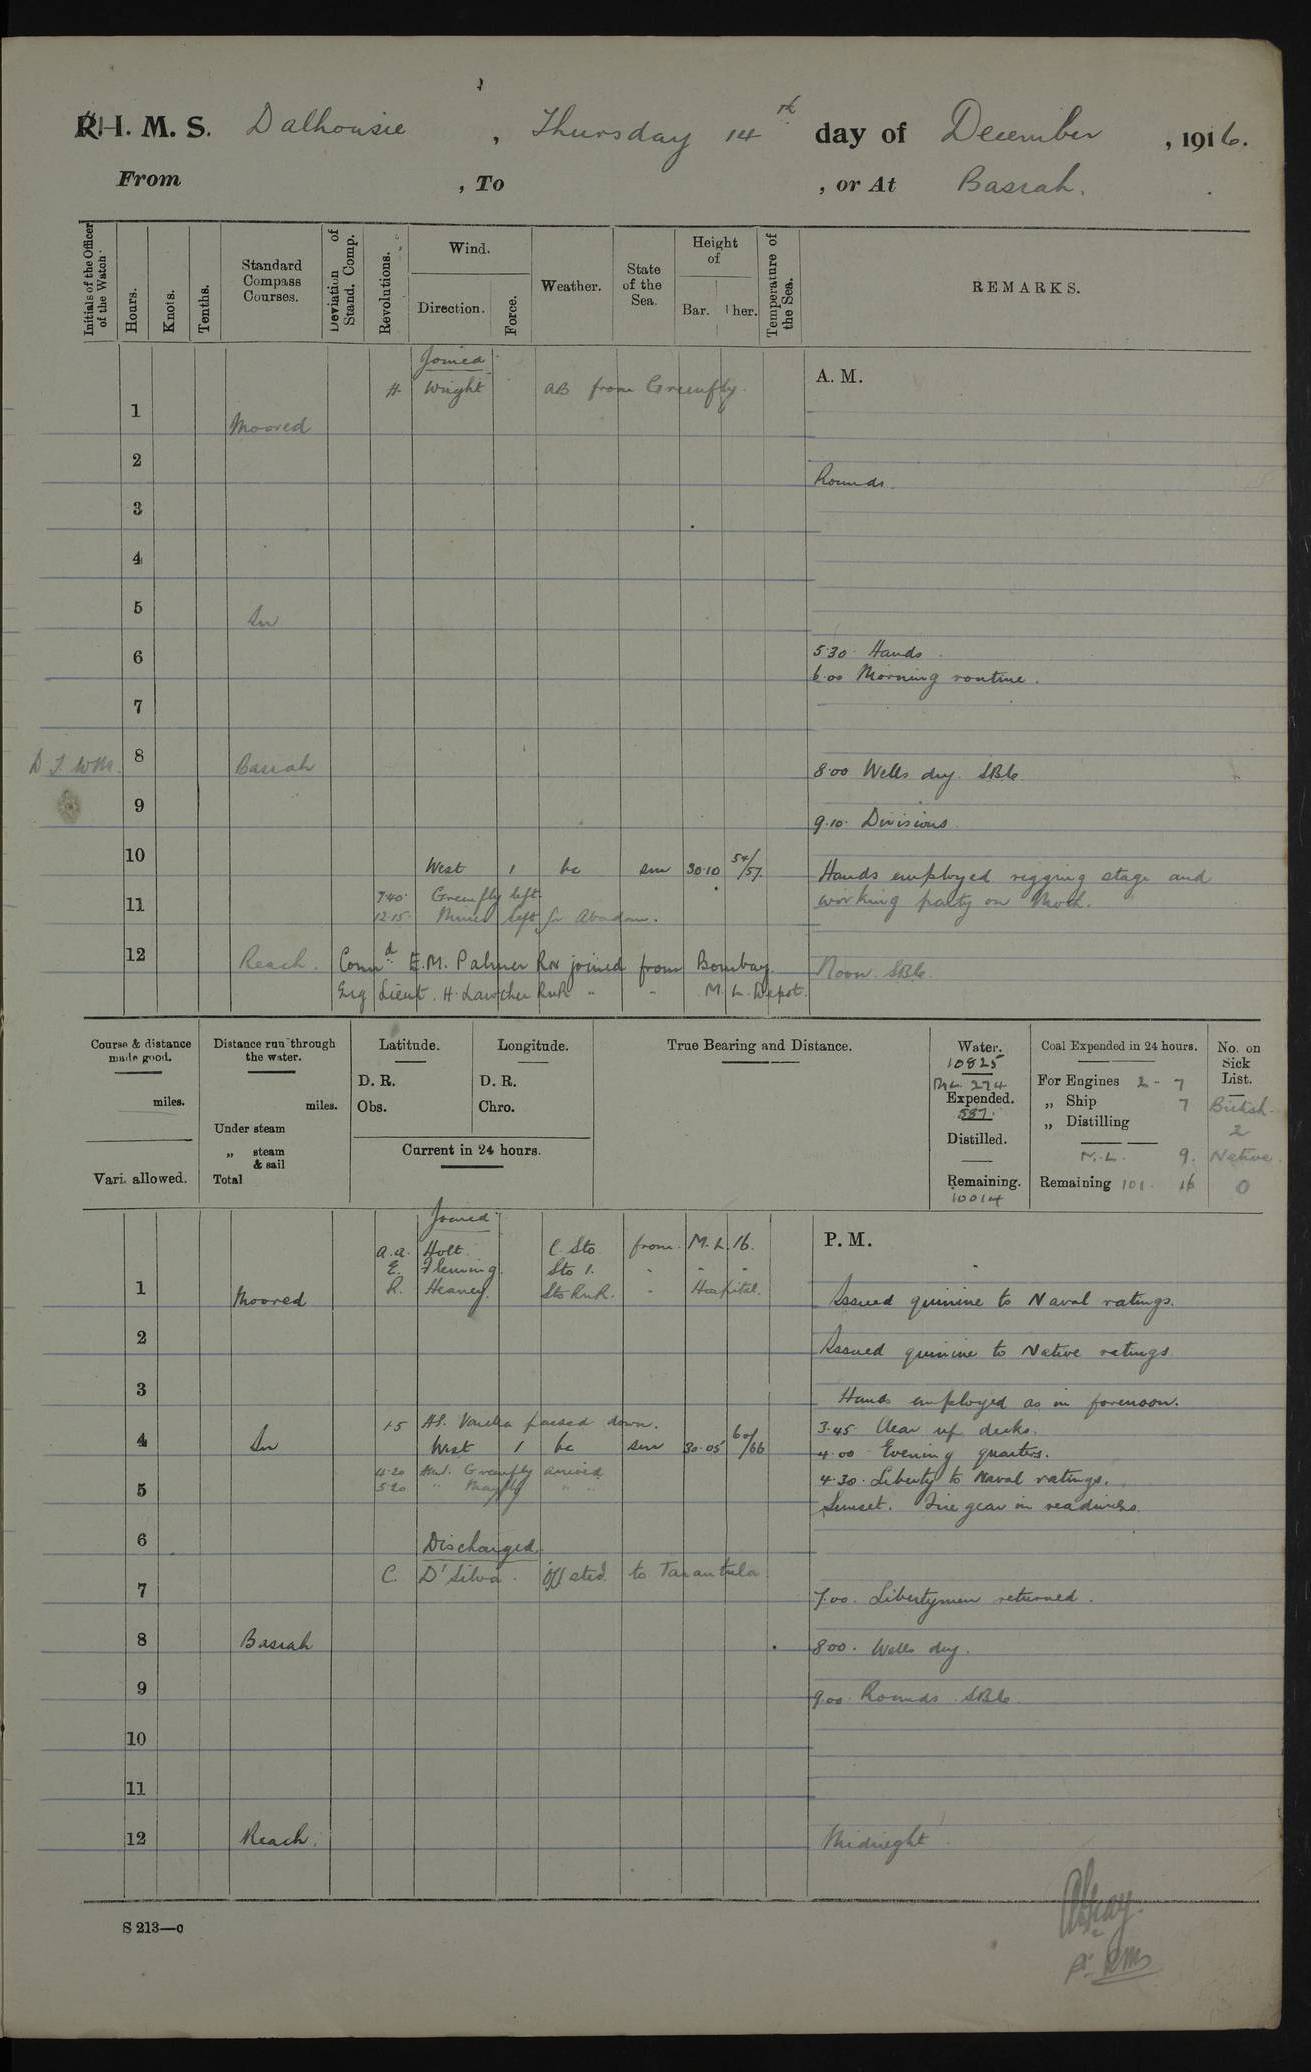 H. M. S. Dalhousie, Thursday 14th day of December, 1916.
From , To , or At Basrah.
Initials of the Officer of the Watch.
Hours.
Knots.
Tenths.
Standard Compass Courses.
Deviation of Stand. Comp.
Revolutions.
Wind.
Direction.
Force.
Weather.
State of the Sea.
Height of
Bar.
Ther.
Temperature of the Sea.
REMARKS.
Joined
H. Wright AB from Greenfly.
A. M.
1
Moored
2
Rounds.
3
4
5
In
5.30 Hands.
6
6.00 Morning routine.
7
8 Basrah
8.00 Wells dry. SBG
9
9.10. Divisions.
10
West 1 bc sm 30.10 54/57.
Hands employed rigging stage and
working party on Moth.
7.40. Greenfly left.
11
12.15. left for Abadan.
12 Reach.
Commd E.M. Palmer RN joined from Bombay.
Noon. SBG.
Eng Lieut. H. RNR " " M.L. Depot.
Course & distance made good.
miles.
Vari. allowed.
Distance run through the water.
miles.
Under steam
„ steam & sail
Total
Latitude.
D. R.
Obs.
Longitude.
D. R.
Chro.
Current in 24 hours.
True Bearing and Distance.
Water.
10825
M.L. 274
Expended.
537.
Distilled.
Remaining.
10014
Coal Expended in 24 hours.
For Engines 2 - 7
„ Ship 7
„ Distilling
M.L. 9.
Remaining 101. 16
No. on Sick List.
British.
2
Native.
0
Joined
P. M.
A.A. Holt. C. Sto. from M.L. 16.
E. Fleming. Sto 1. " " "
R. Heaney. Sto RNR. " Hospital.
1
Moored
Issued quinine to Naval ratings.
2
Issued quinine to Native ratings.
3
Hands employed as in forenoon.
1.5 passed down.
3.45 Clear up decks.
4 In
West 1 bc sm 30.05 60/66
4.00 Evening quarters.
4.20 Greenfly arrived
4.30. Liberty to Naval ratings.
5
5.20 " Mayfly " "
Sunset. Fire gear in readiness.
6
Discharged.
C. D'Silva. Off stewd. to Tarantula.
7
7.00. Libertymen returned.
8 Basrah
8.00. Wells dry.
9
9.00 Rounds. SBG
10
11
12 Reach.
Midnight
S 213—c